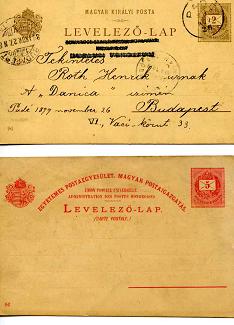 MAGYAR KIRÁLYI POSTA
LEVELEZŐ-LAP
Tekintetes
Roth Henrik urnak
A "Danica" címen
Padé 1899 november 26 Budapest
VI, Váci-körút 33.
EGYETEMES POSTAEGYESÜLET. MAGYAR POSTAIGAZGATÁS.
UNION POSTALE UNIVERSELLE.
ADMINISTRATION DES POSTES HONGROISES
LEVELEZŐ-LAP.
(CARTE POSTALE.)
5